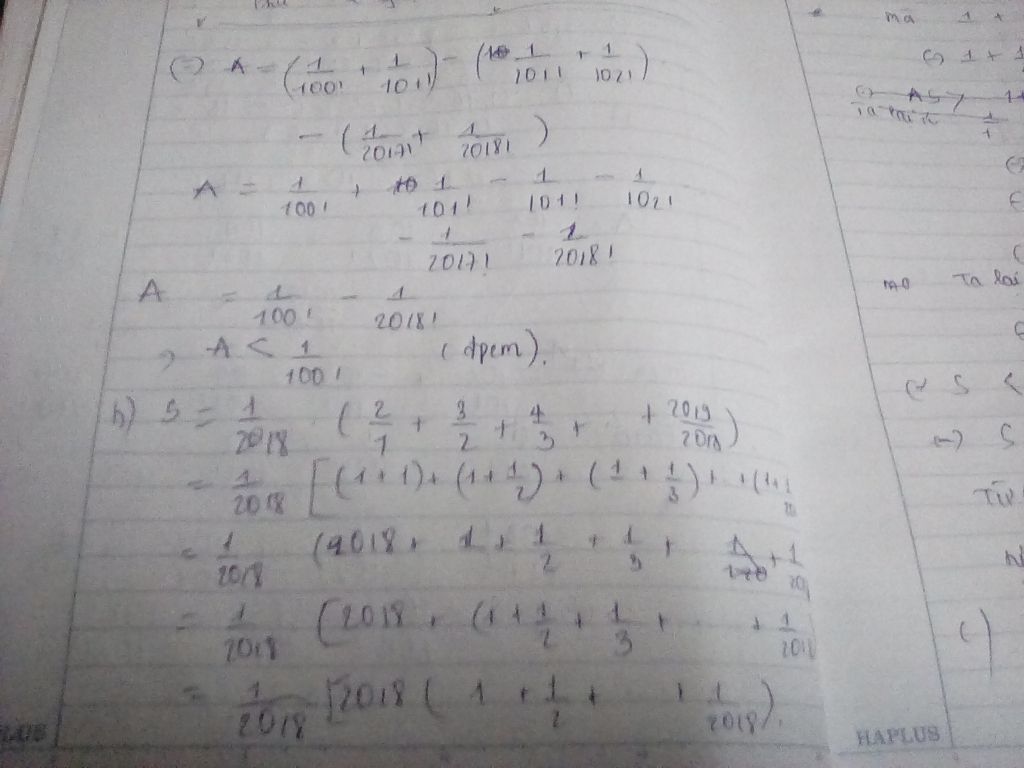 (=) A = (1/100! + 1/101!) - (1/101! + 1/102!)
- (1/2017! + 1/2018!)
A = 1/100! + 1/101! - 1/101! - 1/102!
- 1/2017! - 1/2018!
A = 1/100! - 1/2018!
, A < 1/100! (đpcm).
b) S = 1/2018 (2/1 + 3/2 + 4/3 + . . + 2019/2018)
= 1/2018 [(1 + 1) + (1 + 1/2) + (1 + 1/3) + . + (1 + 1
= 1/2018 (2018 + 1 + 1/2 + 1/3 + + 1
= 1/2018 [2018 + (1 + 1/2 + 1/3 + . . + 1/2018
= 1/2018 [2018 ( 1 + 1/2 + + 1/2018).
HAPLUS
mà 1 +
(=) 1 + 1
Ta lại
(=) S <
(=) S